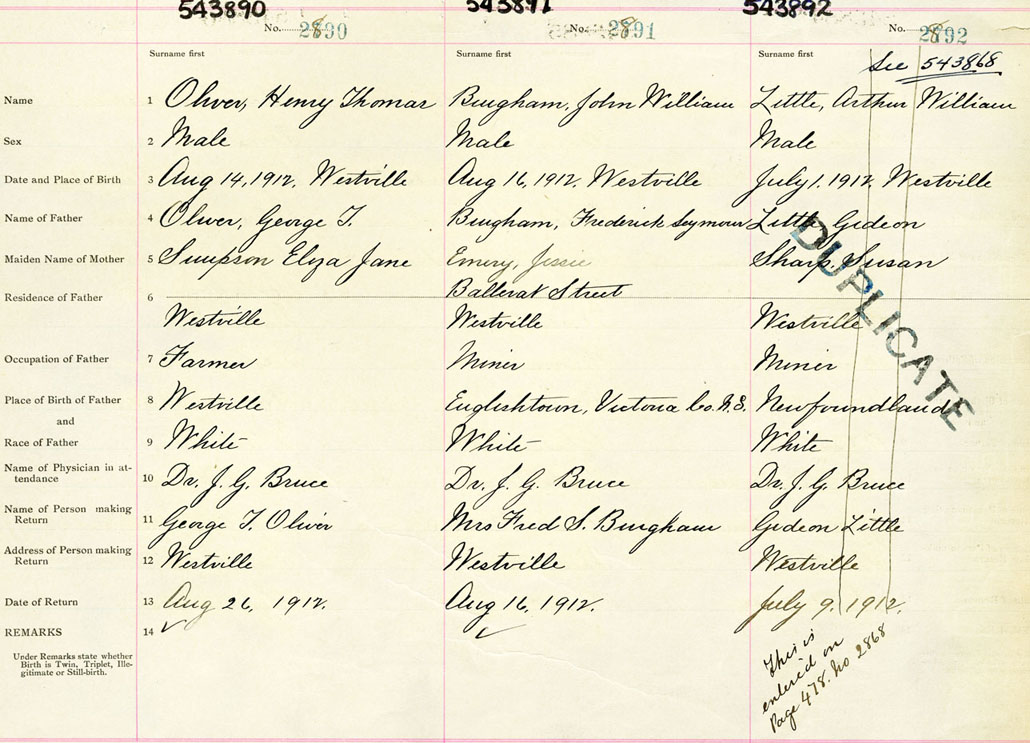 543890 543891 543892
No. 2890 No. 2891 No. 2892
Surname first Surname first Surname first
See 543868
Name 1 Oliver, Henry Thomas Bingham, John William Little, Arthur William
Sex 2 Male Male Male
Date and Place of Birth 3 Aug 14, 1912, Westville Aug 16, 1912. Westville July 1. 1912. Westville
Name of Father 4 Oliver, George T. Bingham, Frederick Seymour Little, Gideon
Maiden Name of Mother 5 Simpson Eliza Jane Emery, Jessie Sharp, Susan
Ballerat Street
Residence of Father 6
Westville Westville Westville
Occupation of Father 7 Farmer Miner Miner
Place of Birth of Father 8 Westville Englishtown, Victoria Co. N.S. Newfoundland
and
Race of Father 9 White White White
Name of Physician in at-
tendance 10 Dr. J. G. Bruce Dr. J. G. Bruce Dr. J. G. Bruce
Name of Person making
Return 11 George T. Oliver Mrs Fred S. Bingham Gideon Little
Address of Person making
Return 12 Westville Westville Westville
Date of Return 13 Aug 26, 1912. Aug 16, 1912. July 9. 1912.
REMARKS 14
Under Remarks state whether
Birth is Twin, Triplet, Ille-
gitimate or Still-birth.
DUPLICATE
This is
entered on
Page 478. No 2868